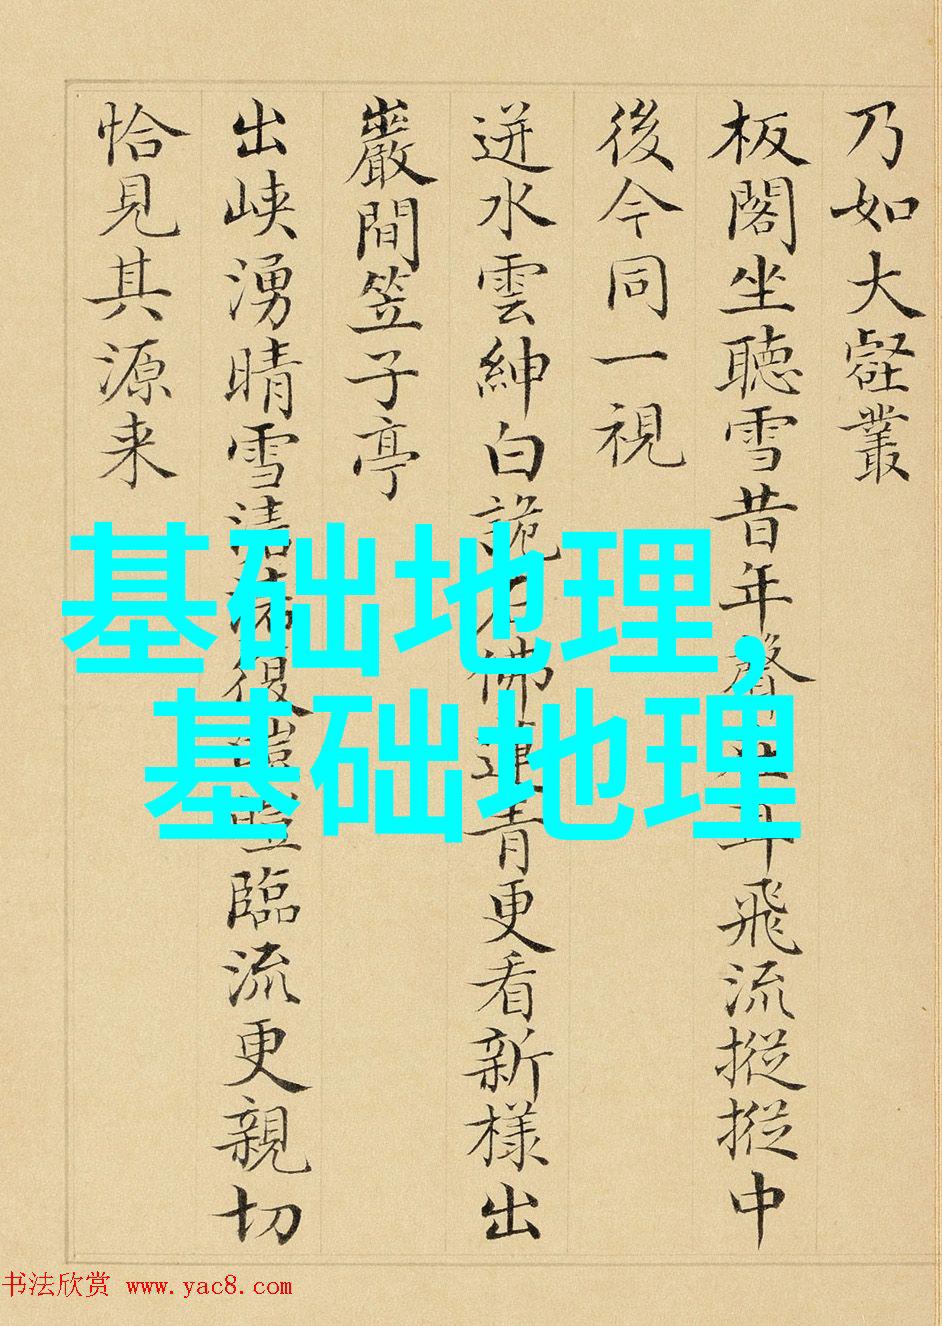 乃如大壑叢
板閣坐聽雪昔年聲耳飛流摐摐中
後今同一視
迸水雲紳白詭石佛蓮青更看新樣出
巖間笠子亭
出峽湧晴雪清復臨流更親切
恰見其源来
基础地理,
基础地理
书法欣赏 www.yac8.com